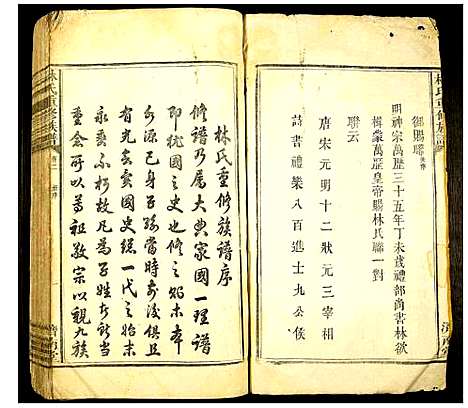 御賜聯
明神宗萬歷三十五年丁未歲禮部尚書林欲
楫蒙萬歷皇帝賜林氏聯一對
聯云
唐宋元明十二狀元三宰相
詩書禮樂八百進士九公侯
林氏重修族譜
林氏重修族譜序
修譜乃屬大典家國一理譜
即猶國之史也修之貽末本
水源已身子孫當時前後俱且
有光矣矣國史總一代之始末
永爽不朽故凡為子姓者斷當
重念可以尊祖敦宗以親九族
濟南堂